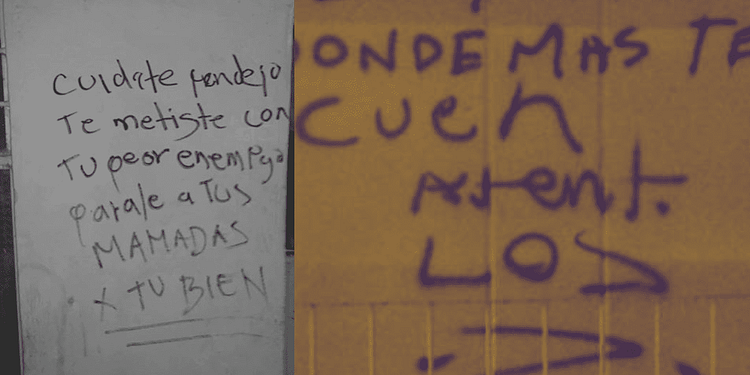 Cuidate pendejo
Te metiste con
TU peor enemigo
parale a TUS
MAMADAS
X TU BIEN
DONDE MAS TE
cuen
Atent.
LOS